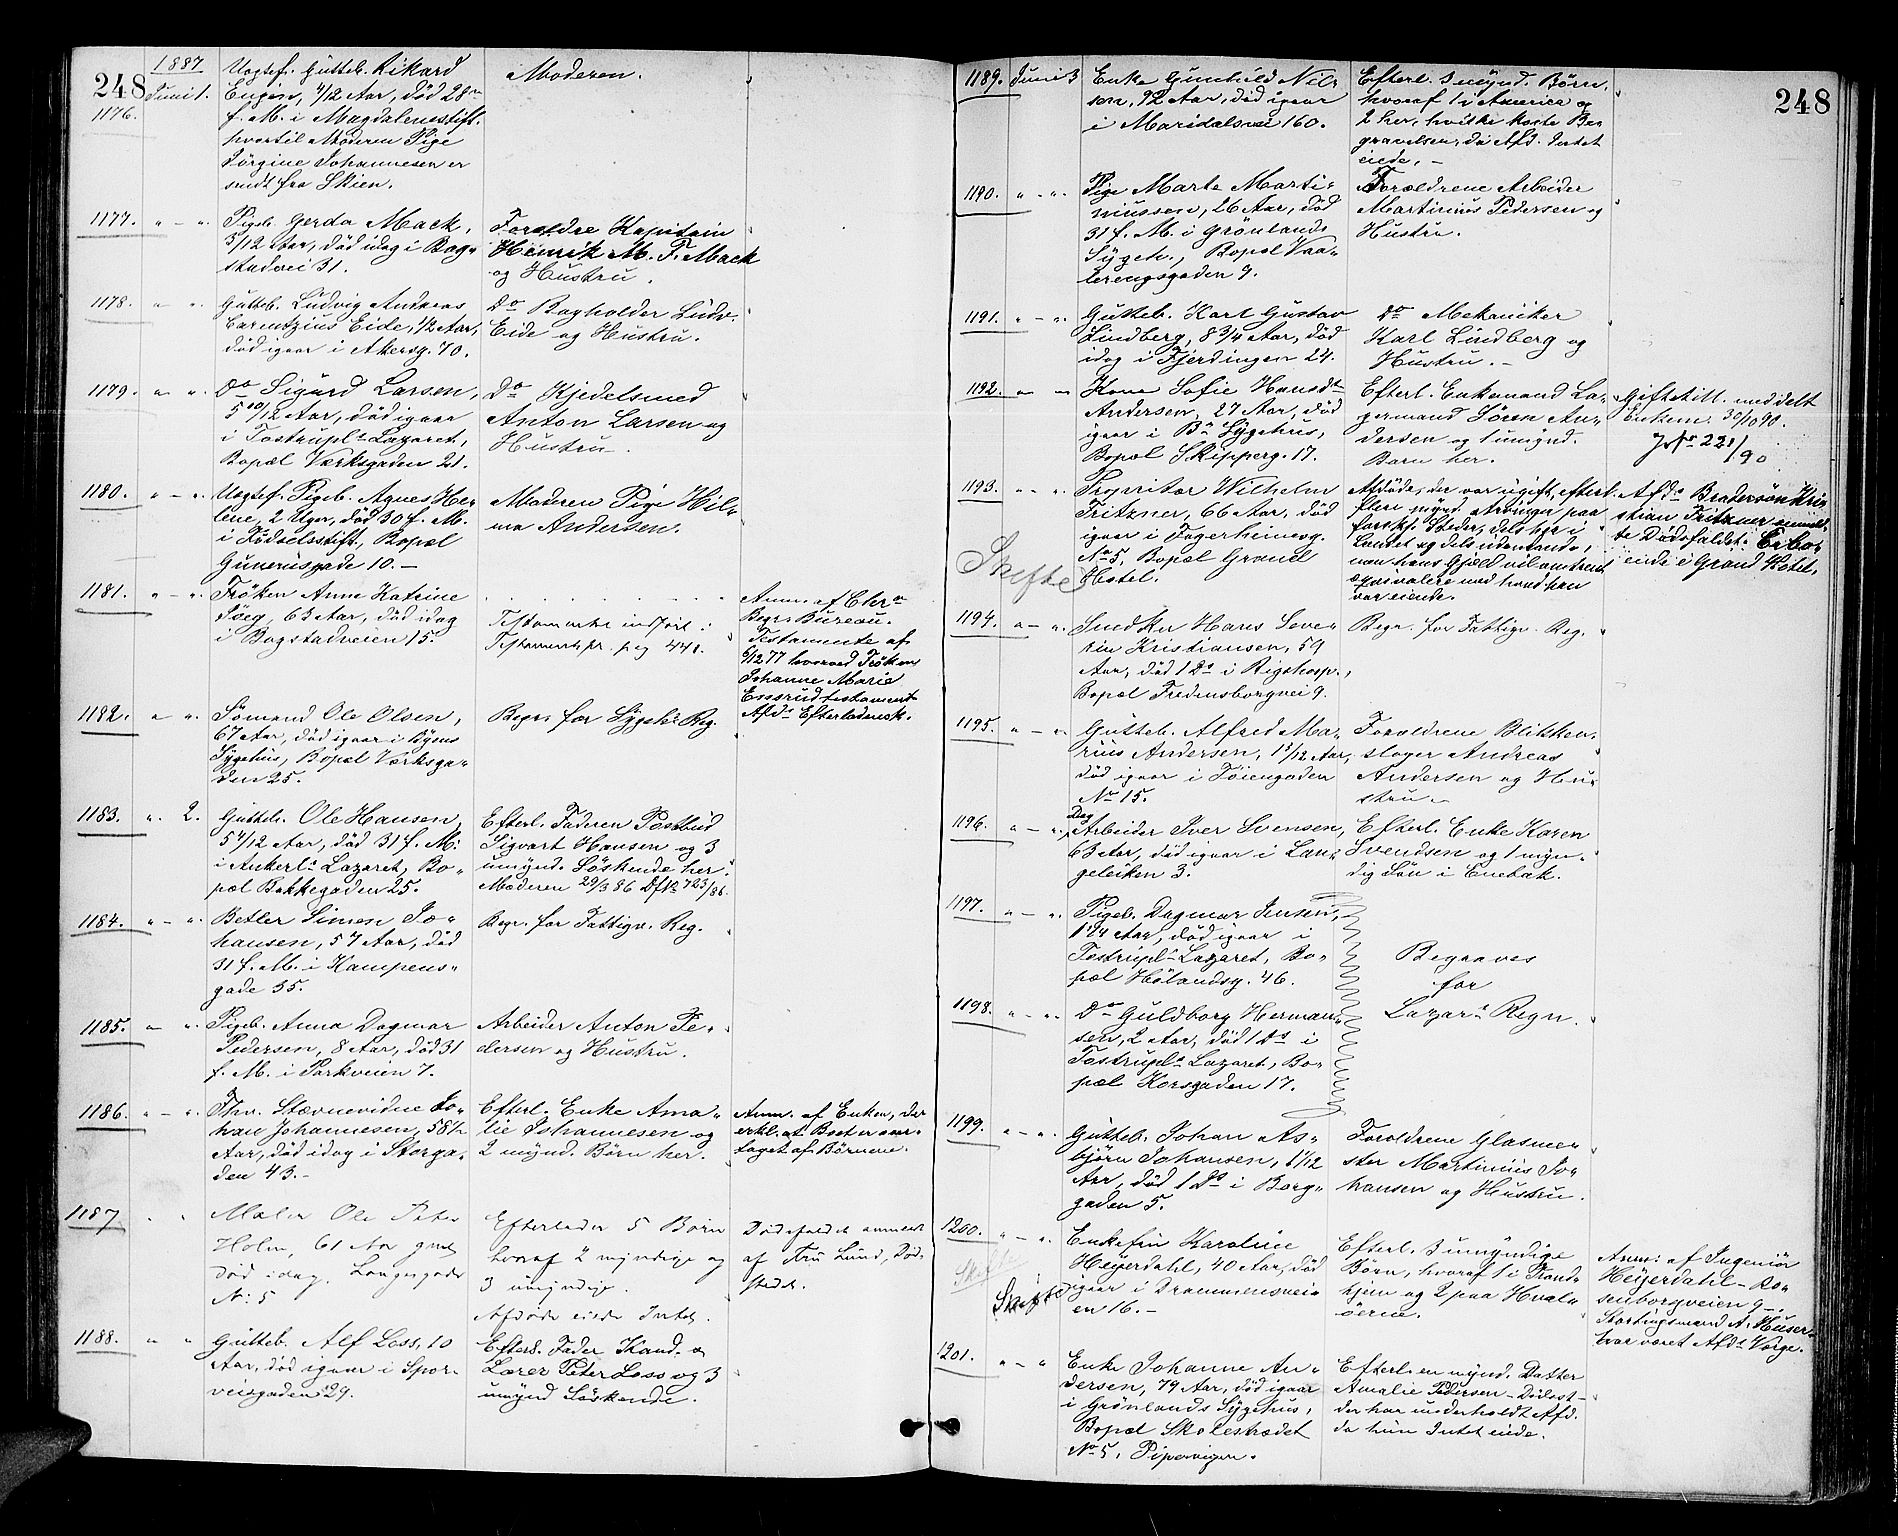 248
1887
Juni 1.
1176.
Uegtef. Gutteb. Rikard
Eugen, 4/12 Aar, död 28de
f. M. i Magdalenestift.
hvortil Moderen Pige
Jörgine Johannesen er
sendt fra Skien.
Moderen.
1177. " - ".
Pigeb. Gerda Mack,
5/12 Aar, död idag i Bog-
stadvei 31.
Forældre Kaptein
Henrik M. F. Mack
og Hustru.
1178. " - ".
Gutteb. Ludvig Andreas
Carentzius Eide, 1/2 Aar,
död igaar i Akersg. 70.
Do Bogholder Ludv.
Eide og Hustru.
1179. " - ".
Do Sigurd Larsen,
5 10/12 Aar, död igaar
i Tostrupl. Lazaret,
Bopæl Værksgaden 21.
Do Kjedelsmed
Anton Larsen og
Hustru.
1180. " - ".
Uegtef. Pigeb. Agnes He-
lene, 2 Uger, död 30 f. M.
i Födselsstift., Bopæl
Gunerusgade 10. -
Moderen Pige Hil-
ma Andersen.
1181. " - ".
Fröken Anne Katrine
63 Aar, död idag
i Bogstadveien 15.
Testamente indfört i
Testamentspr. pag 441.
Anm. af Chra
Begr. Bureau.
Testamente af
6/12 77 hvorved Fröken
Johanne Marie
Afds Efterladensk.
1182. " - ".
Sömand Ole Olsen,
67 Aar, död igaar i Byens
Sygehus, Bopæl Værksga-
den 25.
Begr. for Sygehs Reg.
1183. ". 2.
Gutteb. Ole Hansen,
5 4/12 Aar, död 31 f. M.
i Ankerl. Lazaret, Bo-
pæl Bakkegaden 25.
Efterl. Faderen Postbud
Sigvart Hansen og 3
umynd. Söskende her.
Moderen 29/3 86 Df No 723/86.
1184. " - ".
Betler Simen Jo-
hansen, 57 Aar, död
31 f. M. i Kampens-
gade 35.
Begr. for Fattigv. Reg.
1185. " - ".
Pigeb. Anna Dagmar
Pedersen, 8 Aar, död 31
f. M. i Parkveien 7.
Arbeider Anton Pe-
dersen og Hustru.
1186. " - ".
Fhv. Stævnevidne Jo-
han Johannesen, 58 1/2
Aar, död idag i Storga-
den 43. -
Efterl. Enke Ama-
lie Johannesen og
2 mynd. Börn her.
Anm. af Enken, der
erkl. at Boet er over-
taget af Börnene.
1187 " "
Maler Ole Peter
Holm, 61 Aar gml
död idag, Langesgade
No 5
Efterlader 5 Börn
hvoraf 2 myndige og
3 umyndige.
Afdöde eiede Intet.
Dödsfaldet anmeldt
af Fru Lund, Död-
stedet.
1188. " "
Gutteb. Alf Loss, 10
Aar, död igaar i Spor-
veisgaden 29.
Efterl. Fader Kand. og
Lærer Peter Loss og 3
umynd Söskende.
248
1189. Juni 3
Enke Gunhild Nil-
sen, 92 Aar, död igaar
i Maridalsvei 160.
Efterl. 3 mynd. Börn,
hvoraf 1 i Amerika og
2 her, hvilke koste Be-
gravelsen, da Afd. Intet
eiede. -
1190. " - ".
Pige Marte Marti-
niussen, 26 Aar, död
31 f. M. i Grönlands
Sygeh., Bopæl Vaa-
lerengsgaden 7.
Forældrene Arbeider
Martinius Pedersen og
Hustru.
1191. " - ".
Gutteb. Karl Gustav
Lindberg, 8 3/4 Aar, död
idag i Fjerdingen 24.
Do Mekaniker
Karl Lindberg og
Hustru. -
1192. " - 
Kone Sofie Hansdt
Andersen, 27 Aar, död
igaar i Bs Sygehus,
Bopæl Skipperg. 17.
Efterl. Enkemand La-
germand Sören An-
dersen og 1 umynd.
Barn her.
Giftetill. meddelt
Enkem. 30/10 90.
J. No 221/90
1193. " - ".
Skifte
Proprietær Wilhelm
Fritzner, 66 Aar, död
igaar i Fagerheimsg.
No 5, Bopæl Grand
Hotel.
Afdöde, der var ugift, efterl.
flere mynd. Arvinger paa
forskj. Steder, dels her i
Landet og dels udenlands,
men hans Gjæld vil omtrent
ækvivalere med hvad han
var eiende.
Afds Brodersön Kri-
stian Fritzner anmeld-
te Dödsfaldet. Er bo-
ende i Grand Hotel.
1194. " - ".
Snedker Hans Seve-
rin Kristiansen, 59
Aar, död 1 Ds i Rigshosp.,
Bopæl Fredensborgvei 9.
Begr. for Fattigv. Reg.
1195. " - ".
Gutteb. Alfred Ma-
rius Andersen, 1 3/12 Aar,
död igaar i Töiengaden
No 15.
Forældrene Blikken-
slager Andreas
Andersen og Hu-
stru. -
1196. " - ".
Dag
Arbeider Iver Svensen,
63 Aar, död igaar i Lan-
geleiken 3.
Efterl. Enke Karen
Svendsen og 1 myn-
dig Sön i Enebak.
1197. " - ".
Pigeb. Dagmar Jensen,
1 3/4 Aar, död igaar i
Tostrupl. Lazaret, Bo-
pæl Hölandsg. 46.
Begraves
for
Lazars Regn.
1198. " - ".
Do Guldborg Herman-
sen, 2 Aar, död 1 Ds i
Tostrupl. Lazaret, Bo-
pæl Korsgaden 17.
1199. " - ".
Gutteb. Johan As-
björn Johansen, 1 1/12
Aar, död 1 Ds i Borg-
gaden 5.
Forældrene Glasme-
ster Martinius Jo-
hansen og Hustru.
1200. " - ".
Skifte
Skifte
Enkefru Karoline
Heyerdahl, 40 Aar, död
igaar i Drammensvei-
en 16. -
Efterl. 3 umyndige
Börn, hvoraf 1 i Trond-
hjem og 2 paa Hval-
öerne.
Anm. af Ingeniör
Heyerdahl - Ro-
senborgveien 9 -.
Stortingsmand A. Huser-
har været Afds Værge.
1201. " - "
Enke Johanne An-
dersen, 79 Aar, död igaar
i Grönlands Sygehus,
Bopæl Skolestrædet
No 5, Pipervigen.
Efterl. en mynd. Datter
Amalie Pedersen - Dölest-
der har underholdt Afd.
da hun Intet eiede.